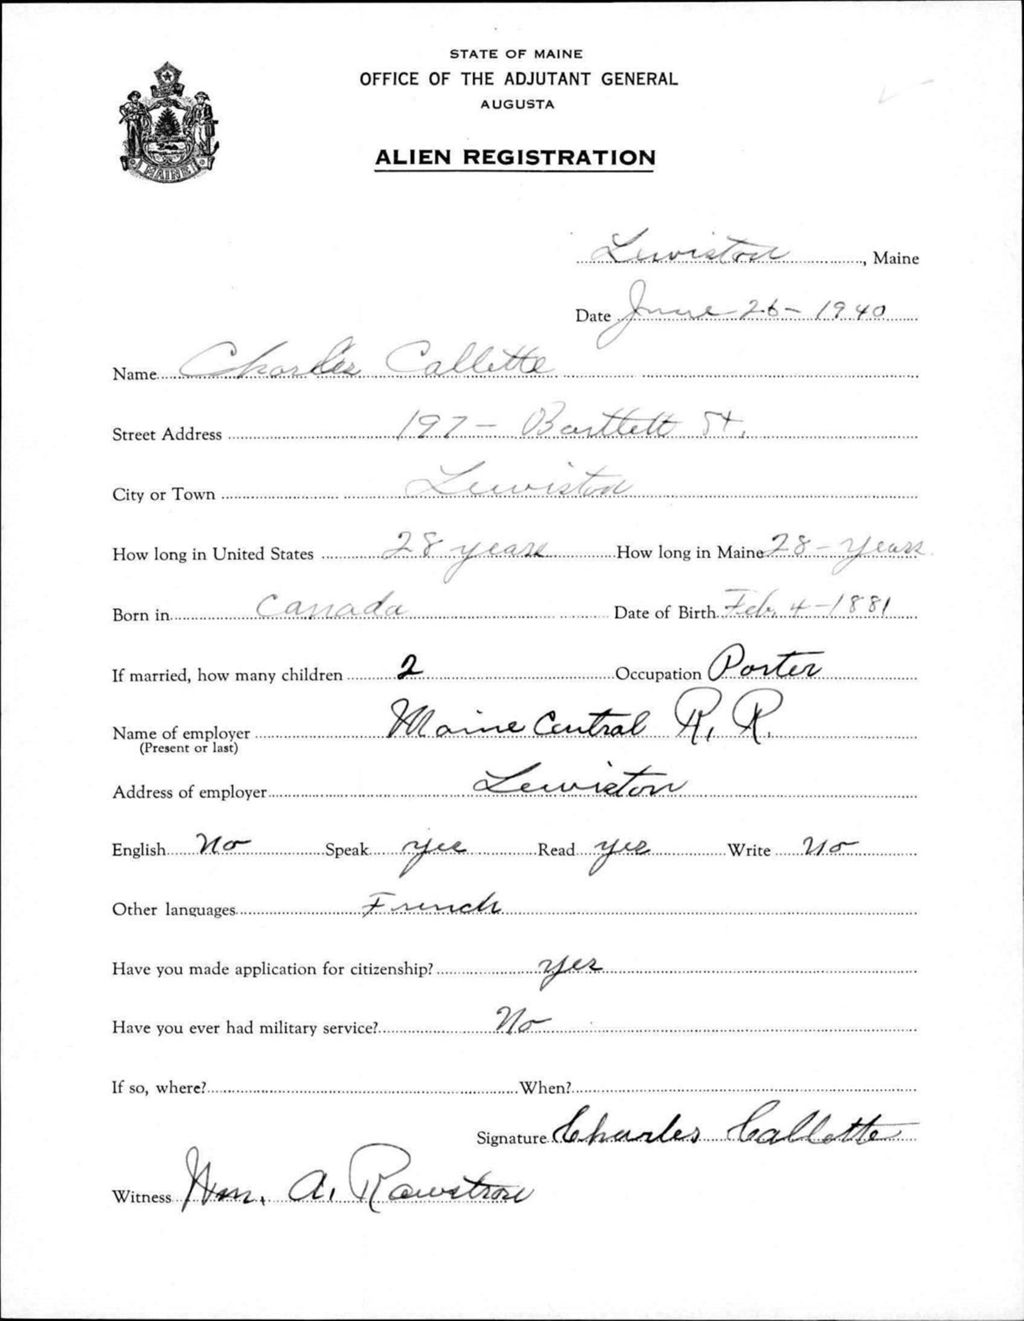 STATE OF MAINE
OFFICE OF THE ADJUTANT GENERAL
AUGUSTA
ALIEN REGISTRATION
MAINE
Lewiston, Maine
Date June 26 - 1940
Name Charles Callette
Street Address 197 - Bartlett St.
City or Town Lewiston
How long in United States 28 years How long in Maine 28 - years
Born in Canada Date of Birth Feb. 4 - 1881
If married, how many children 2 Occupation Porter
Name of employer Maine Central R. R.
(Present or last)
Address of employer Lewiston
English No Speak yes Read yes Write No
Other languages French
Have you made application for citizenship? yes
Have you ever had military service? No
If so, where? When?
Signature Charles Callette
Witness Wm. A. Rowstrose